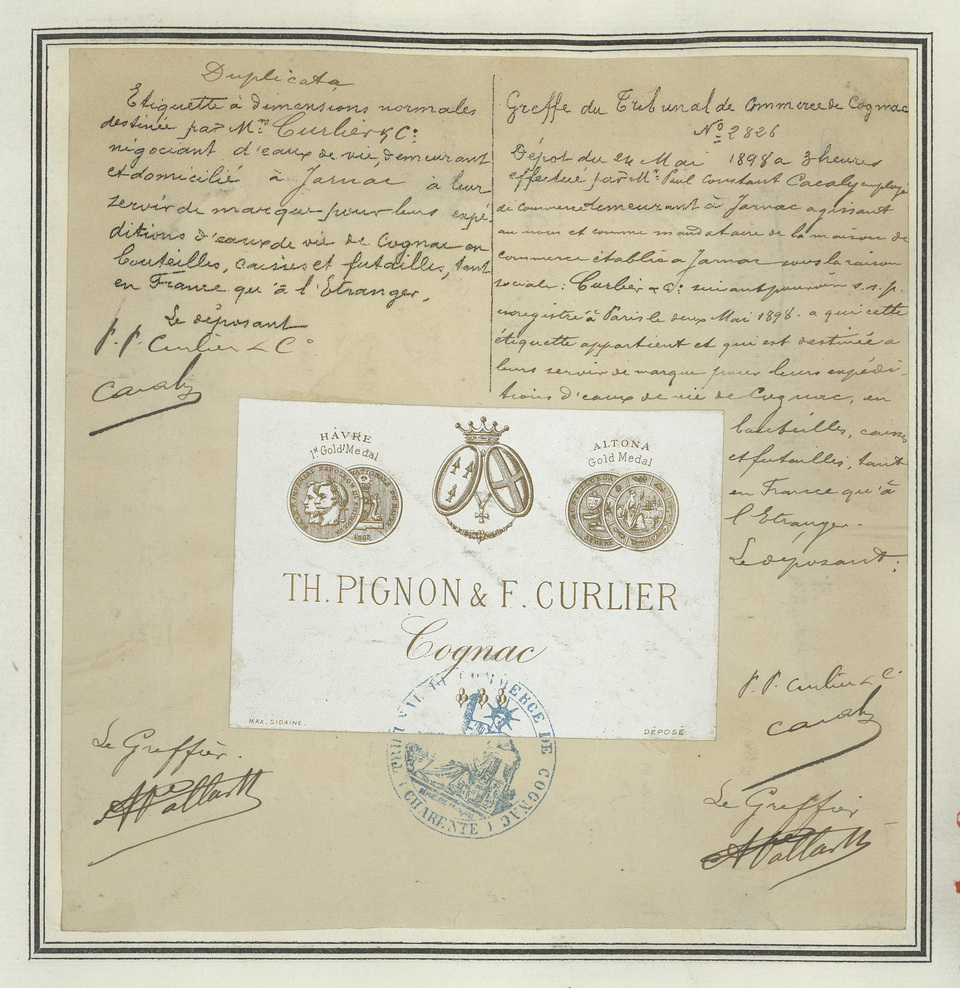 Duplicata
Etiquette à dimensions normales
destinée par Mrs Curlier & Ce
négociant d'eaux de vie, demeurant
et domicilié à Jarnac à leur
servir de marque pour leurs expé-
ditions d'eaux de vie de Cognac en
bouteilles, caisses et futailles, tant
en France qu'à l'Etranger.
Le déposant
P. P. Curlier & Co
Cavaly
Greffe du Tribunal de Commerce de Cognac
No 2826
Dépot du 24 Mai 1898 a 3 heures
effectué par Mr Paul Constant Cavaly employé
de commerce demeurant à Jarnac agissant
au nom et comme mandataire de la maison de
commerce établie a Jarnac sous la raison
sociale: Curlier & Ce suivant pouvoir s.s.p.
enregistré à Paris le deux Mai 1898. a qui cette
étiquette appartient et qui est destinée a
leurs servir de marque pour leurs expédi-
tions d'eaux de vie de Cognac, en
bouteilles, caisses
et futailles, tant
en France qu'à
l'Etranger.
Le déposant:
P. P. Curlier & Ce
Cavaly
HÂVRE
1st Gold Medal
ALTONA
Gold Medal
TH. PIGNON & F. CURLIER
Cognac
MAX. SIDAINE.
DÉPOSÉ
TRIBUNAL DE COMMERCE DE COGNAC
(CHARENTE)
Le Greffier.
Le Greffier